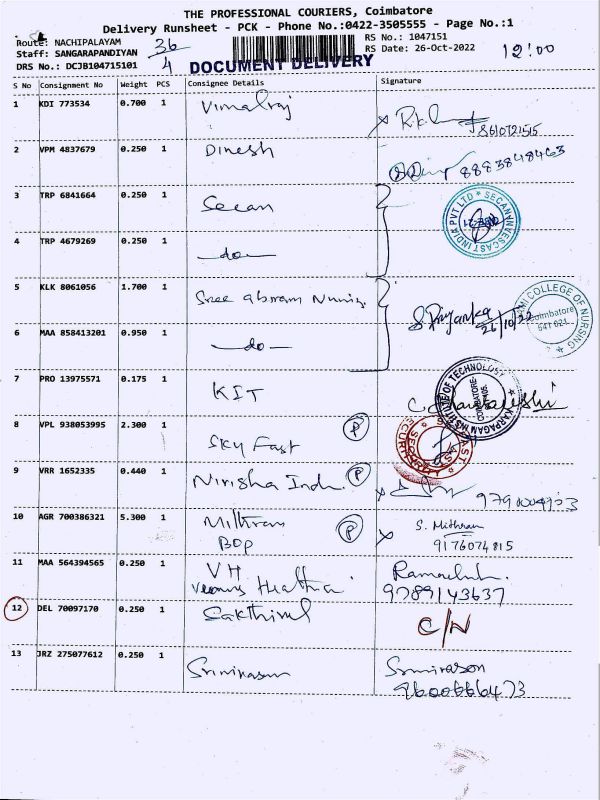 THE PROFESSIONAL COURIERS, Coimbatore
Delivery Runsheet - PCK - Phone No.:0422-3505555 - Page No.:1
Route: NACHIPALAYAM 36 RS No.: 1047151
Staff: SANGARAPANDIYAN RS Date: 26-Oct-2022 12:00
DRS No.: DCJB104715101 4 DOCUMENT DELIVERY
S No Consignment No Weight PCS Consignee Details Signature
1 KDI 773534 0.700 1 Vimalraj
8610721515
2 VPM 4837679 0.250 1 Dinesh 8883848463
3 TRP 6841664 0.250 1 Secan
SECAN INVESCAST INDIA PVT LTD
4 TRP 4679269 0.250 1 -do-
5 KLK 8061056 1.700 1 Sree
S. Priyanka 26/10/22
COLLEGE OF NURSING Coimbatore 641 021.
6 MAA 858413201 0.950 1 -do-
7 PRO 13975571 0.175 1 KIT
KARPAGAM INSTITUTE OF TECHNOLOGY COIMBATORE
8 VPL 938053995 2.300 1 Sky Fast P
9 VRR 1652335 0.440 1 Nirisha Ind. P
10 AGR 700386321 5.300 1 Mithram P S. Mithram
BOP 9176074815
11 MAA 564394565 0.250 1 VH
9789143637
12 DEL 70097170 0.250 1 Sakthivel C/N
13 JRZ 275077612 0.250 1 Srinivasan Srinivasan
9600666473